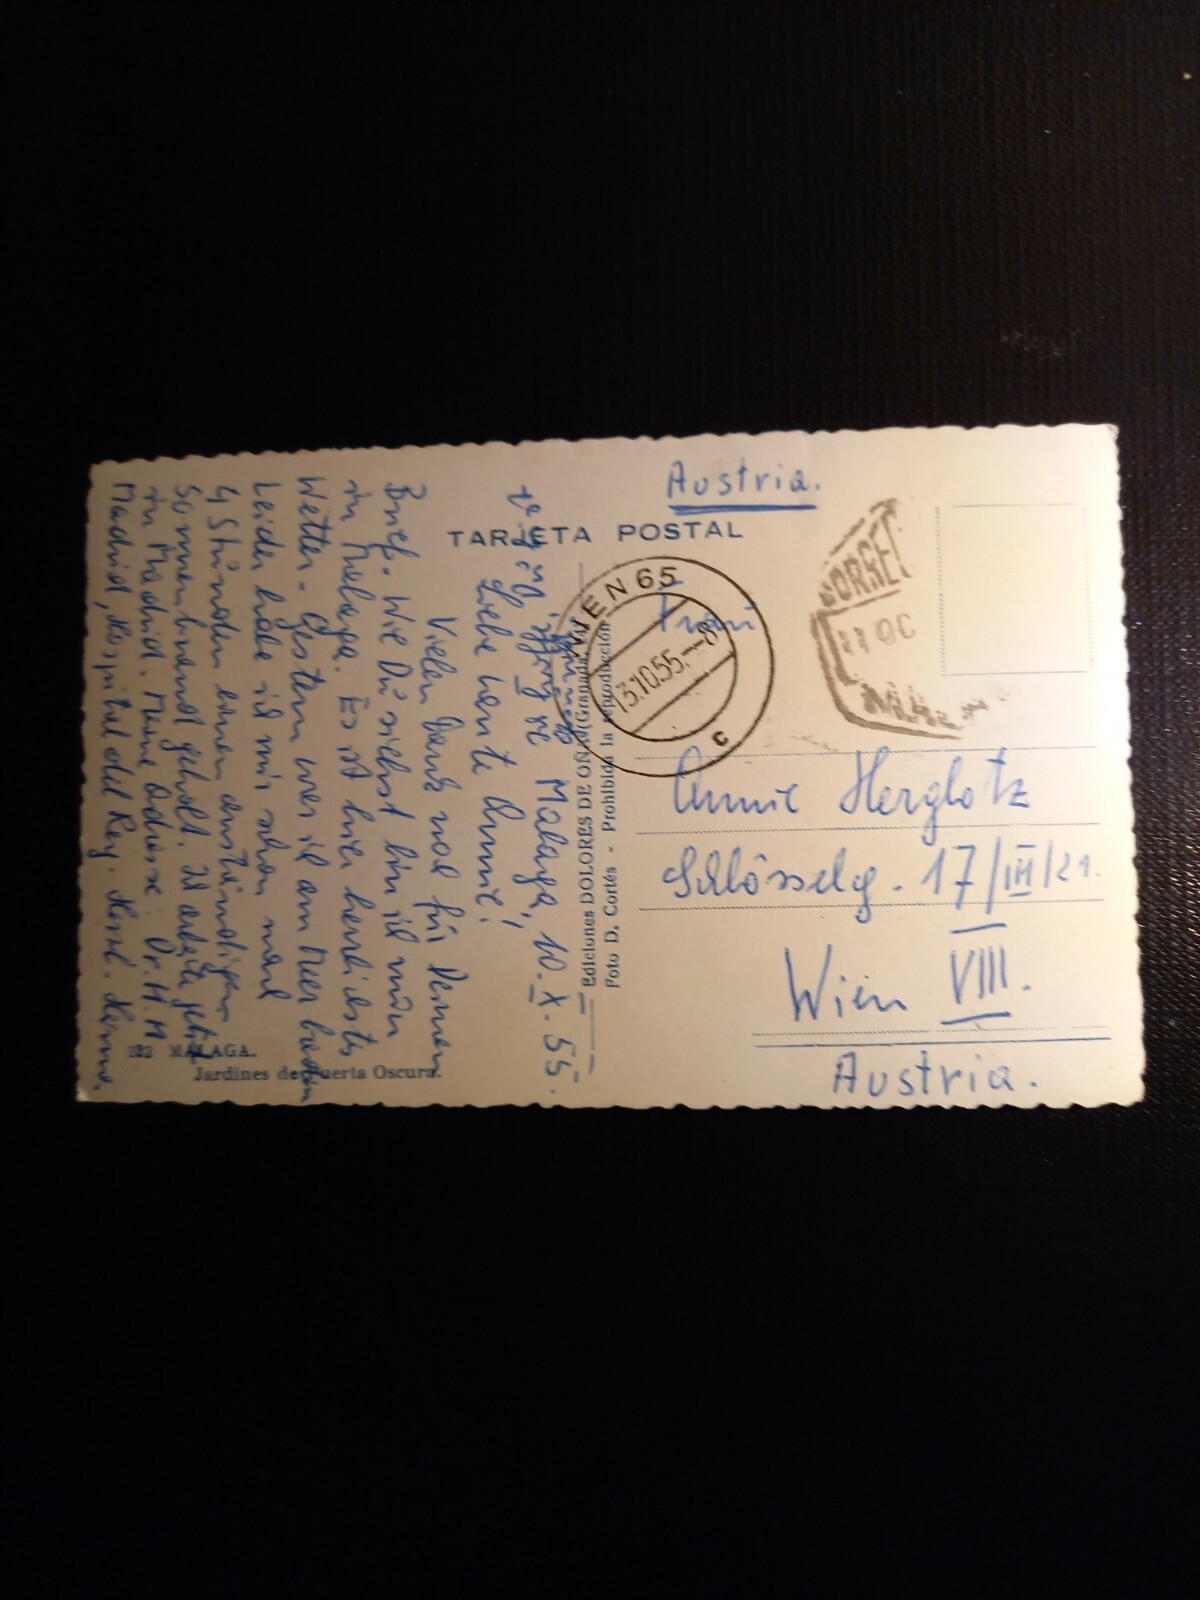 Austria.
TARJETA POSTAL
CORREO
11 OC
MALAGA
WIEN 65
13.10.55.-8
c
Frau
Annie Herglotz
Schlösselg. 17/III/21.
Wien VIII.
Austria.
Ediciones DOLORES DE OÑA (Granada)
Foto D. Cortés - Prohibida la reproducción
Malaga, 10.X.55.
Liebe Tante Annie!
Vielen Dank noch für Deinen
Brief. Wie Du siehst bin ich nun
in Malaga. Es ist hier herrlichstes
Wetter - Gestern war ich am Meer baden
Leider habe ich mir schon nach
4 Stunden einen anständigen
Sonnenbrand geholt. Ich arbeite jetzt
in Madrid. Meine Adresse: Dr. H. M
Madrid, Hospital del Rey.
182 MALAGA.
Jardines de Puerta Oscura.